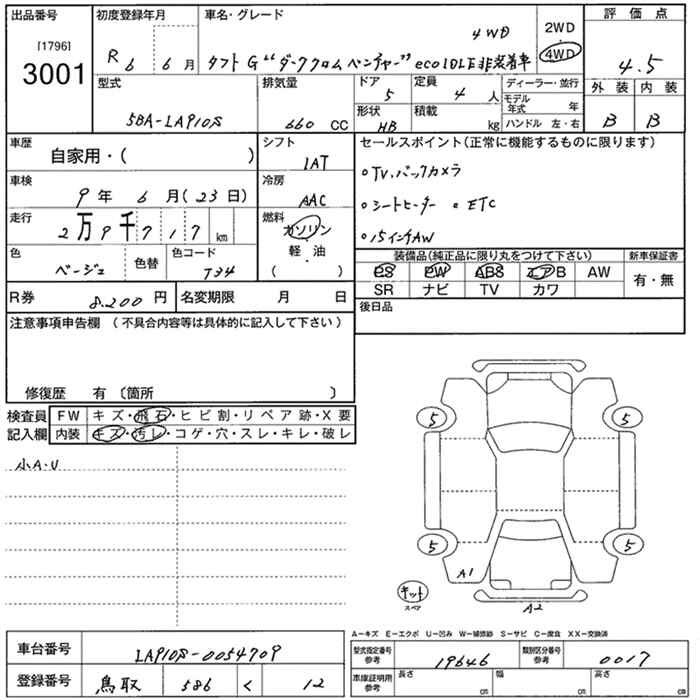 出品番号
[1796]
3001
初度登録年月
R6 6月
車名・グレード
4WD
タフト G "ダーククロム ベンチャー" eco IDLE非装着車
2WD
・
4WD
評価点
4.5
外装 内装
B B
型式
5BA-LA910S
排気量
660 CC
ドア
5
定員
4 人
形状
HB
積載
kg
ディーラー・並行
モデル年式 年
ハンドル 左・右
車歴
自家用・( )
シフト
IAT
車検
9年 6月(23日)
冷房
AAC
走行
2万9千717 km
燃料
ガソリン
軽・油
( )
色
ベージュ
色替
色コード
T34
R券 8.200円
名変期限 月 日
セールスポイント(正常に機能するものに限ります)
○TV.バックカメラ
○シートヒーター ○ETC
○15インチAW
装備品(純正品に限り丸をつけて下さい)
PS PW ABS エアB AW
SR ナビ TV カワ
新車保証書
有・無
後日品
注意事項申告欄 (不具合内容等は具体的に記入して下さい)
修復歴 有 〔箇所 〕
検査員記入欄
FW キズ・飛石・ヒビ割・リペア跡・X要
内装 キズ・汚レ・コゲ・穴・スレ・キレ・破レ
小A・U
5 5
5 5
A1
A2
キット
スペア
A-キズ E-エクボ U-凹み W-補修跡 S-サビ C-腐食 XX-交換済
車台番号 LA910S-0054709
登録番号 鳥取 586 く 12
型式指定番号 参考 19646
類別区分番号 参考 0017
車庫証明用 参考 長さ cm 幅 cm 高さ cm